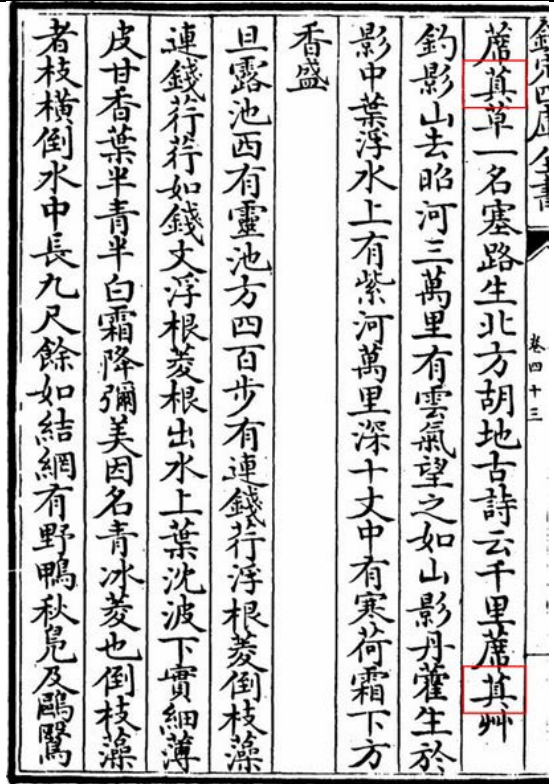 欽定四庫全書
卷四十三
蓆萁草一名塞路生北方胡地古詩云千里蓆萁艸
釣影山去昭河三萬里有雲氣望之如山影丹藿生於
影中葉浮水上有紫河萬里深十丈中有寒荷霜下方
香盛
旦露池西有靈池方四百步有連錢荇浮根菱倒枝藻
連錢荇荇如錢文浮根菱根出水上葉沈波下實細薄
皮甘香葉半青半白霜降彌美因名青冰菱也倒枝藻
者枝橫倒水中長九尺餘如結網有野鴨秋鳧及鷗鷖